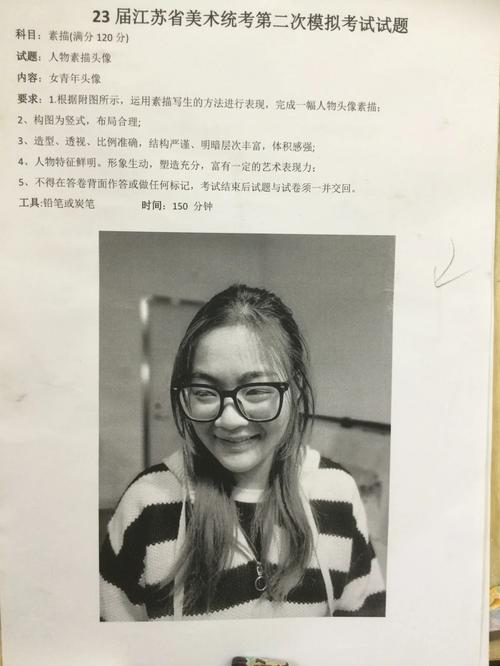 23 届江苏省美术统考第二次模拟考试试题
科目：素描(满分 120 分)
试题：人物素描头像
内容：女青年头像
要求：1.根据附图所示，运用素描写生的方法进行表现，完成一幅人物头像素描；
2、构图为竖式，布局合理；
3、造型、透视、比例准确，结构严谨、明暗层次丰富，体积感强；
4、人物特征鲜明。形象生动，塑造充分，富有一定的艺术表现力；
5、不得在答卷背面作答或做任何标记，考试结束后试题与试卷须一并交回。
工具:铅笔或炭笔 时间：150 分钟